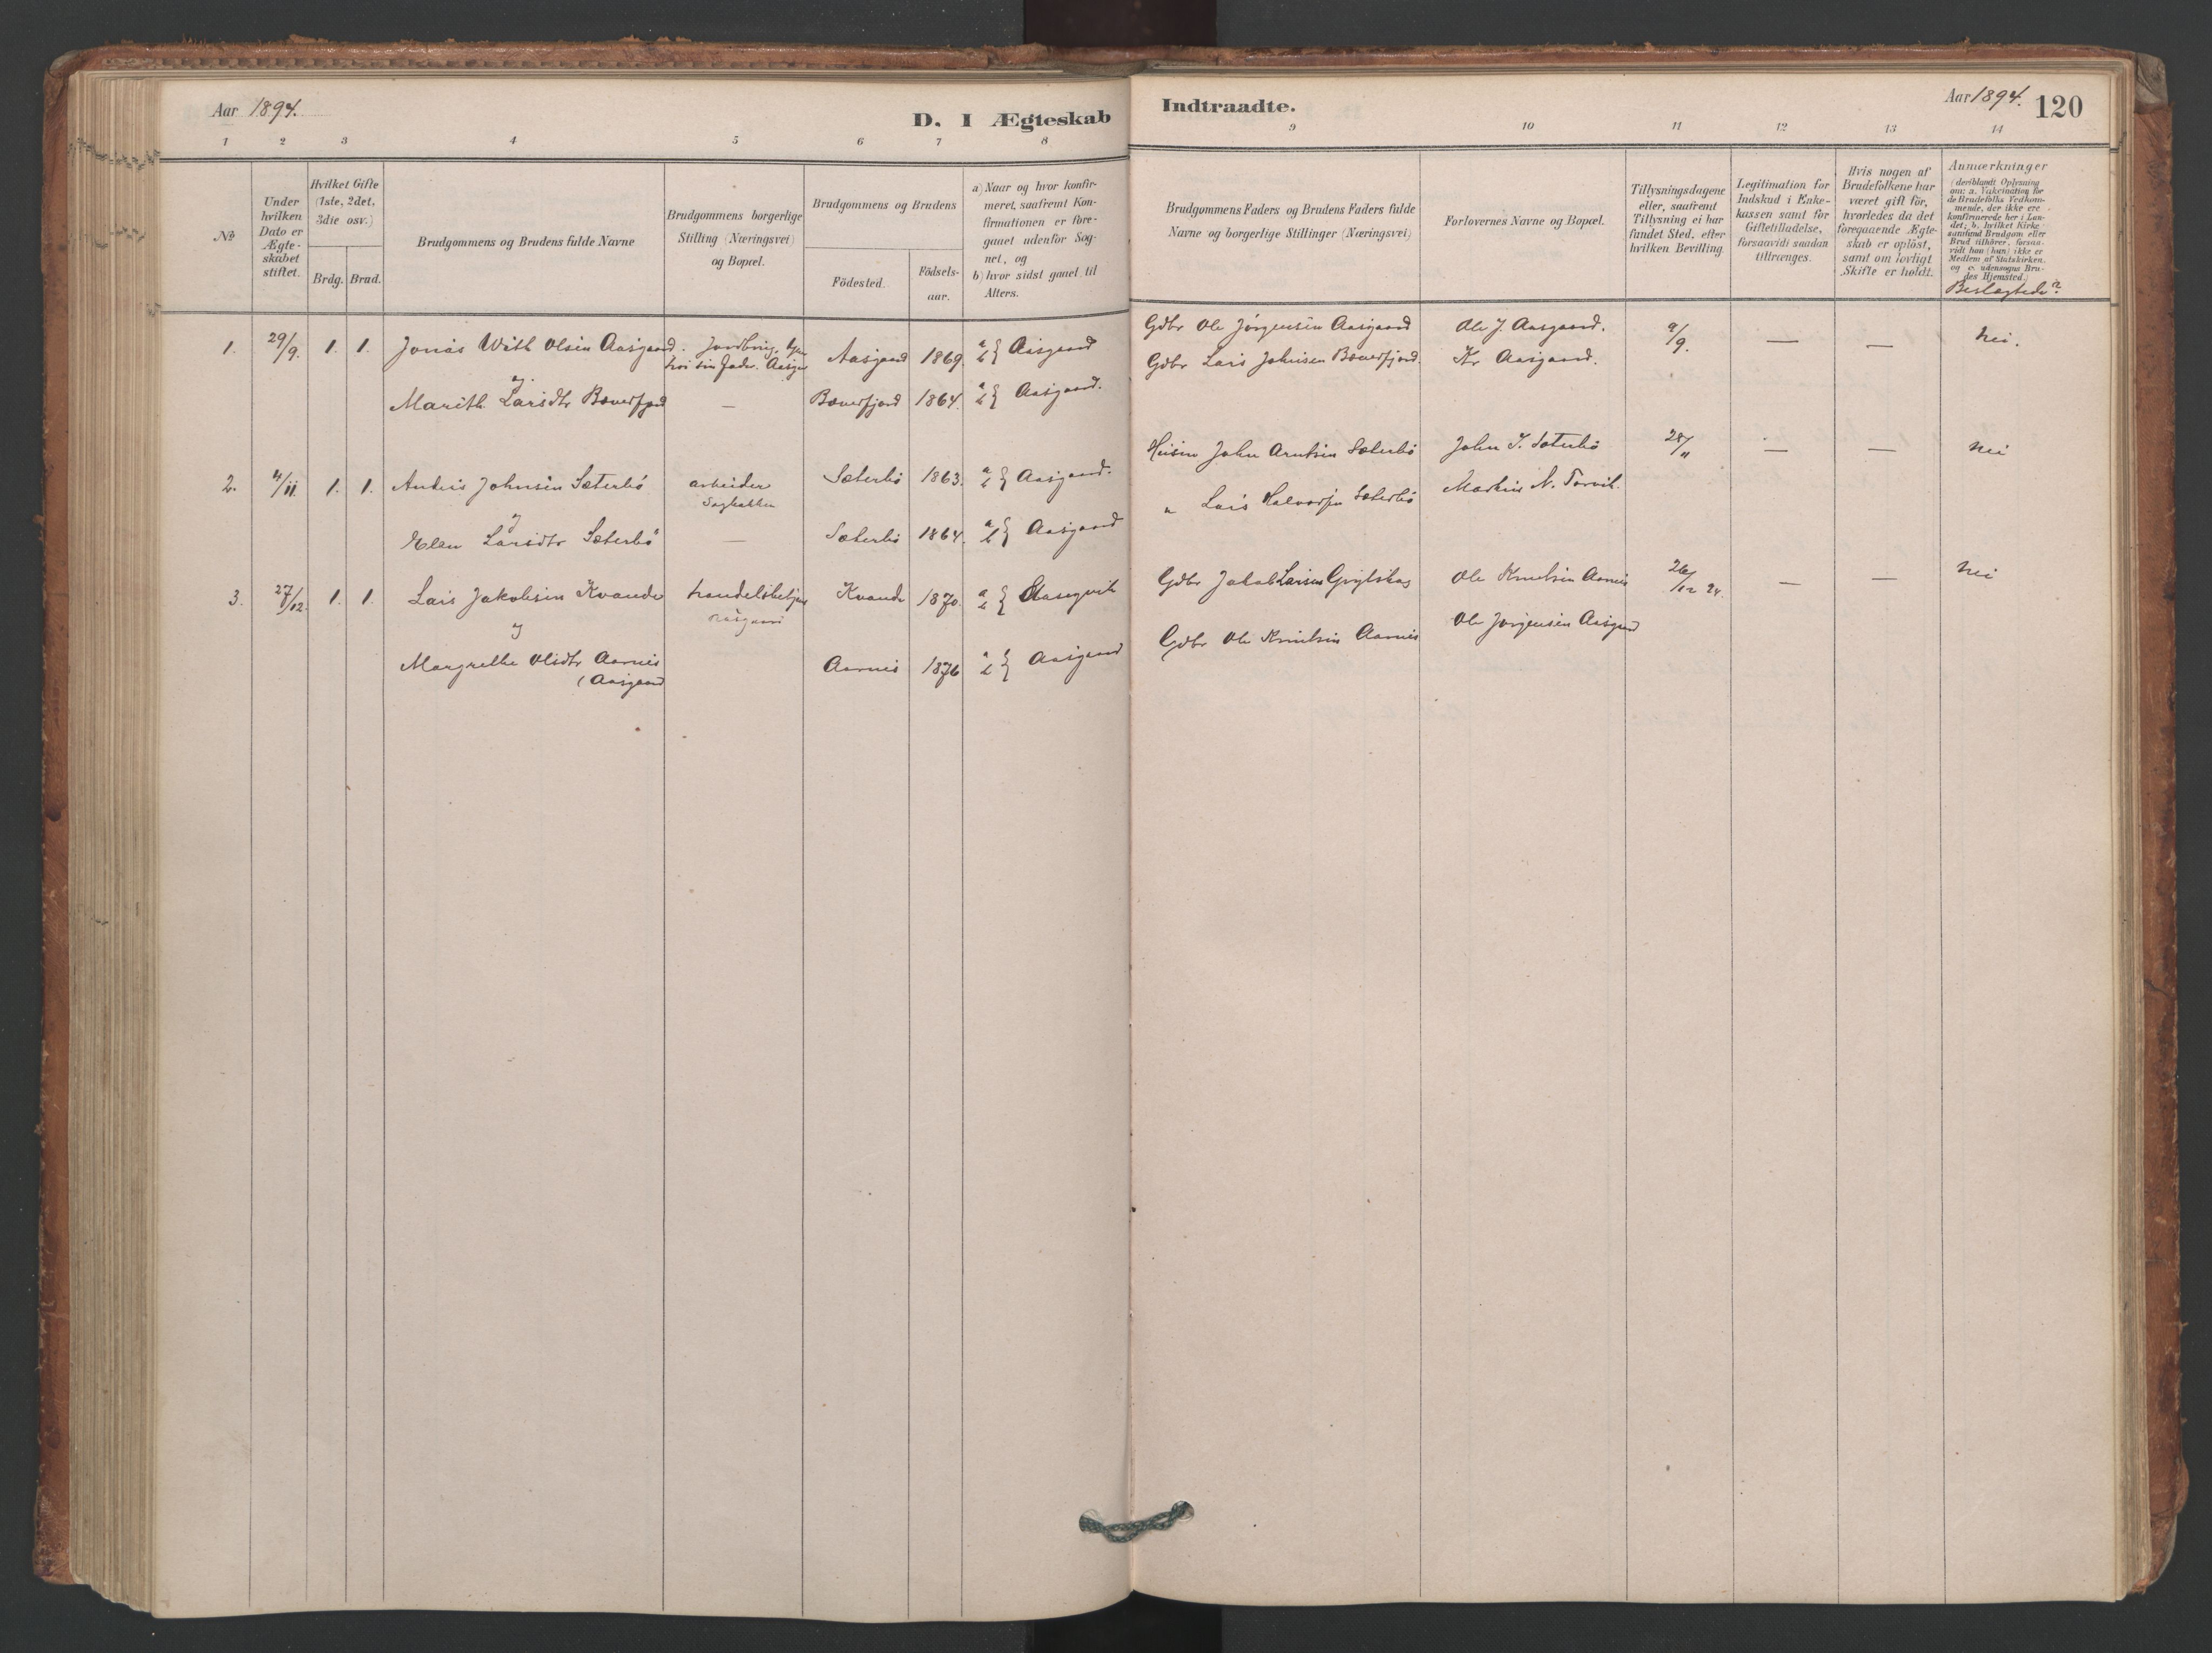 Aar 1894.
D. I Ægteskab Indtraadte.
Aar 1894. 120
1 2 3 4 5 6 7 8 9 10 11 12 13 14
No
Under
hvilken
Dato er
Ægte-
skabet
stiftet.
Hvilket Gifte
(1ste, 2det,
3die osv.)
Brdg. Brud.
Brudgommens og Brudens fulde Navne
Brudgommens borgerlige
Stilling (Næringsvei)
og Bopæl.
Brudgommens og Brudens
Födested.
Födsels-
aar.
a) Naar og hvor konfir-
meret, saafremt Kon-
firmationen er fore-
gaaet udenfor Sog-
net, og
b) hvor sidst gaaet til
Alters.
Brudgommens Faders og Brudens Faders fulde
Navne og borgerlige Stillinger (Næringsvei)
Forlovernes Navne og Bopæl.
Tillysningsdagene
eller, saafremt
Tillysning ei har
fundet Sted, efter
hvilken Bevilling.
Legitimation for
Indskud i Enke-
kassen samt for
Giftetilladelse,
forsaavidt saadan
tiltrænges.
Hvis nogen af
Brudefolkene har
været gift för,
hvorledes da det
foregaaende Ægte-
skab er oplöst,
samt om lovligt
Skifte er holdt.
Anmærkninger
(deriblandt Oplysning
om: a. Vakcination for
de Brudefolks Vedkom-
mende, der ikke ere
konfirmerede her i Lan-
det; b. hvilket Kirke-
samfund Brudgom eller
Brud tilhörer, forsaa-
vidt han (hun) ikke er
Medlem af Statskirken,
og c. udensogns Bru-
des Hjemsted.)
Beslægtede?
1. 29/9. 1. 1. Jonas With Olsen Aasgaard. Jordbrug.
hos sin Fader. Aasgaard Aasgaard 1869. a b } Aasgaard
Gdbr Ole Jörgensen Aasgaard Ole J. Aasgaard. 9/9. — — Nei.
og
Marith Larsdtr Bæverfjord — Bæverfjord 1864. a b } Aasgaard.
Gdbr Lars Johnsen Bæverfjord. Kr Aasgaard.
2. 4/11. 1. 1. Anders Johnsen Sæterbö arbeider
Sagbakken Sæterbö 1863. a b } Aasgaard.
Husm John Arntsen Sæterbö John J. Sæterbö 28/11 — — Nei
og
Elen Larsdtr Sæterbö — Sæterbö 1864. a b } Aasgaard
" Lars Halvorsen Sæterbö Markus N. Torvik.
3. 27/12. 1. 1. Lars Jakobsen Kvande handelsbetjent
Aasgaard Kvande 1870. a b }
Gdbr Jakob Larsen Ole Knutsen Aarnes 26/12 94. — — Nei
og
Margrethe Olsdtr Aarnes
(Aasgaard Aarnes 1876 a b } Aasgaard
Gdbr Ole Knutsen Aarnes Ole Jörgensen Aasgaard